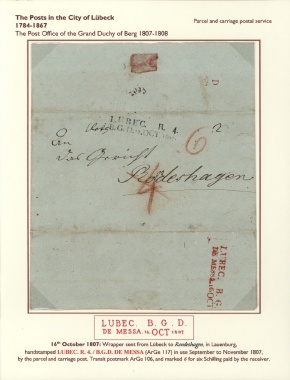 The Posts in the City of Lübeck
1784-1867
Parcel and carriage postal service
The Post Office of the Grand Duchy of Berg 1807-1808
LUBEC. R. 4.
B.G.D. OCT
6
2
An
das Gericht
Rondeshagen
4
LUBEC. B. G.
DE MESSA. 16 OCT
LUBEC. B. G. D.
DE MESSA. 16 OCT 1807
16th October 1807: Wrapper sent from Lübeck to Rondeshagen, in Lauenburg,
handstamped LUBEC. R. 4. / B.G.D. DE MESSA (ArGe 117) in use September to November 1807,
by the parcel and carriage post. Transit postmark ArGe 106, and marked 6 for six Schilling paid by the receiver.